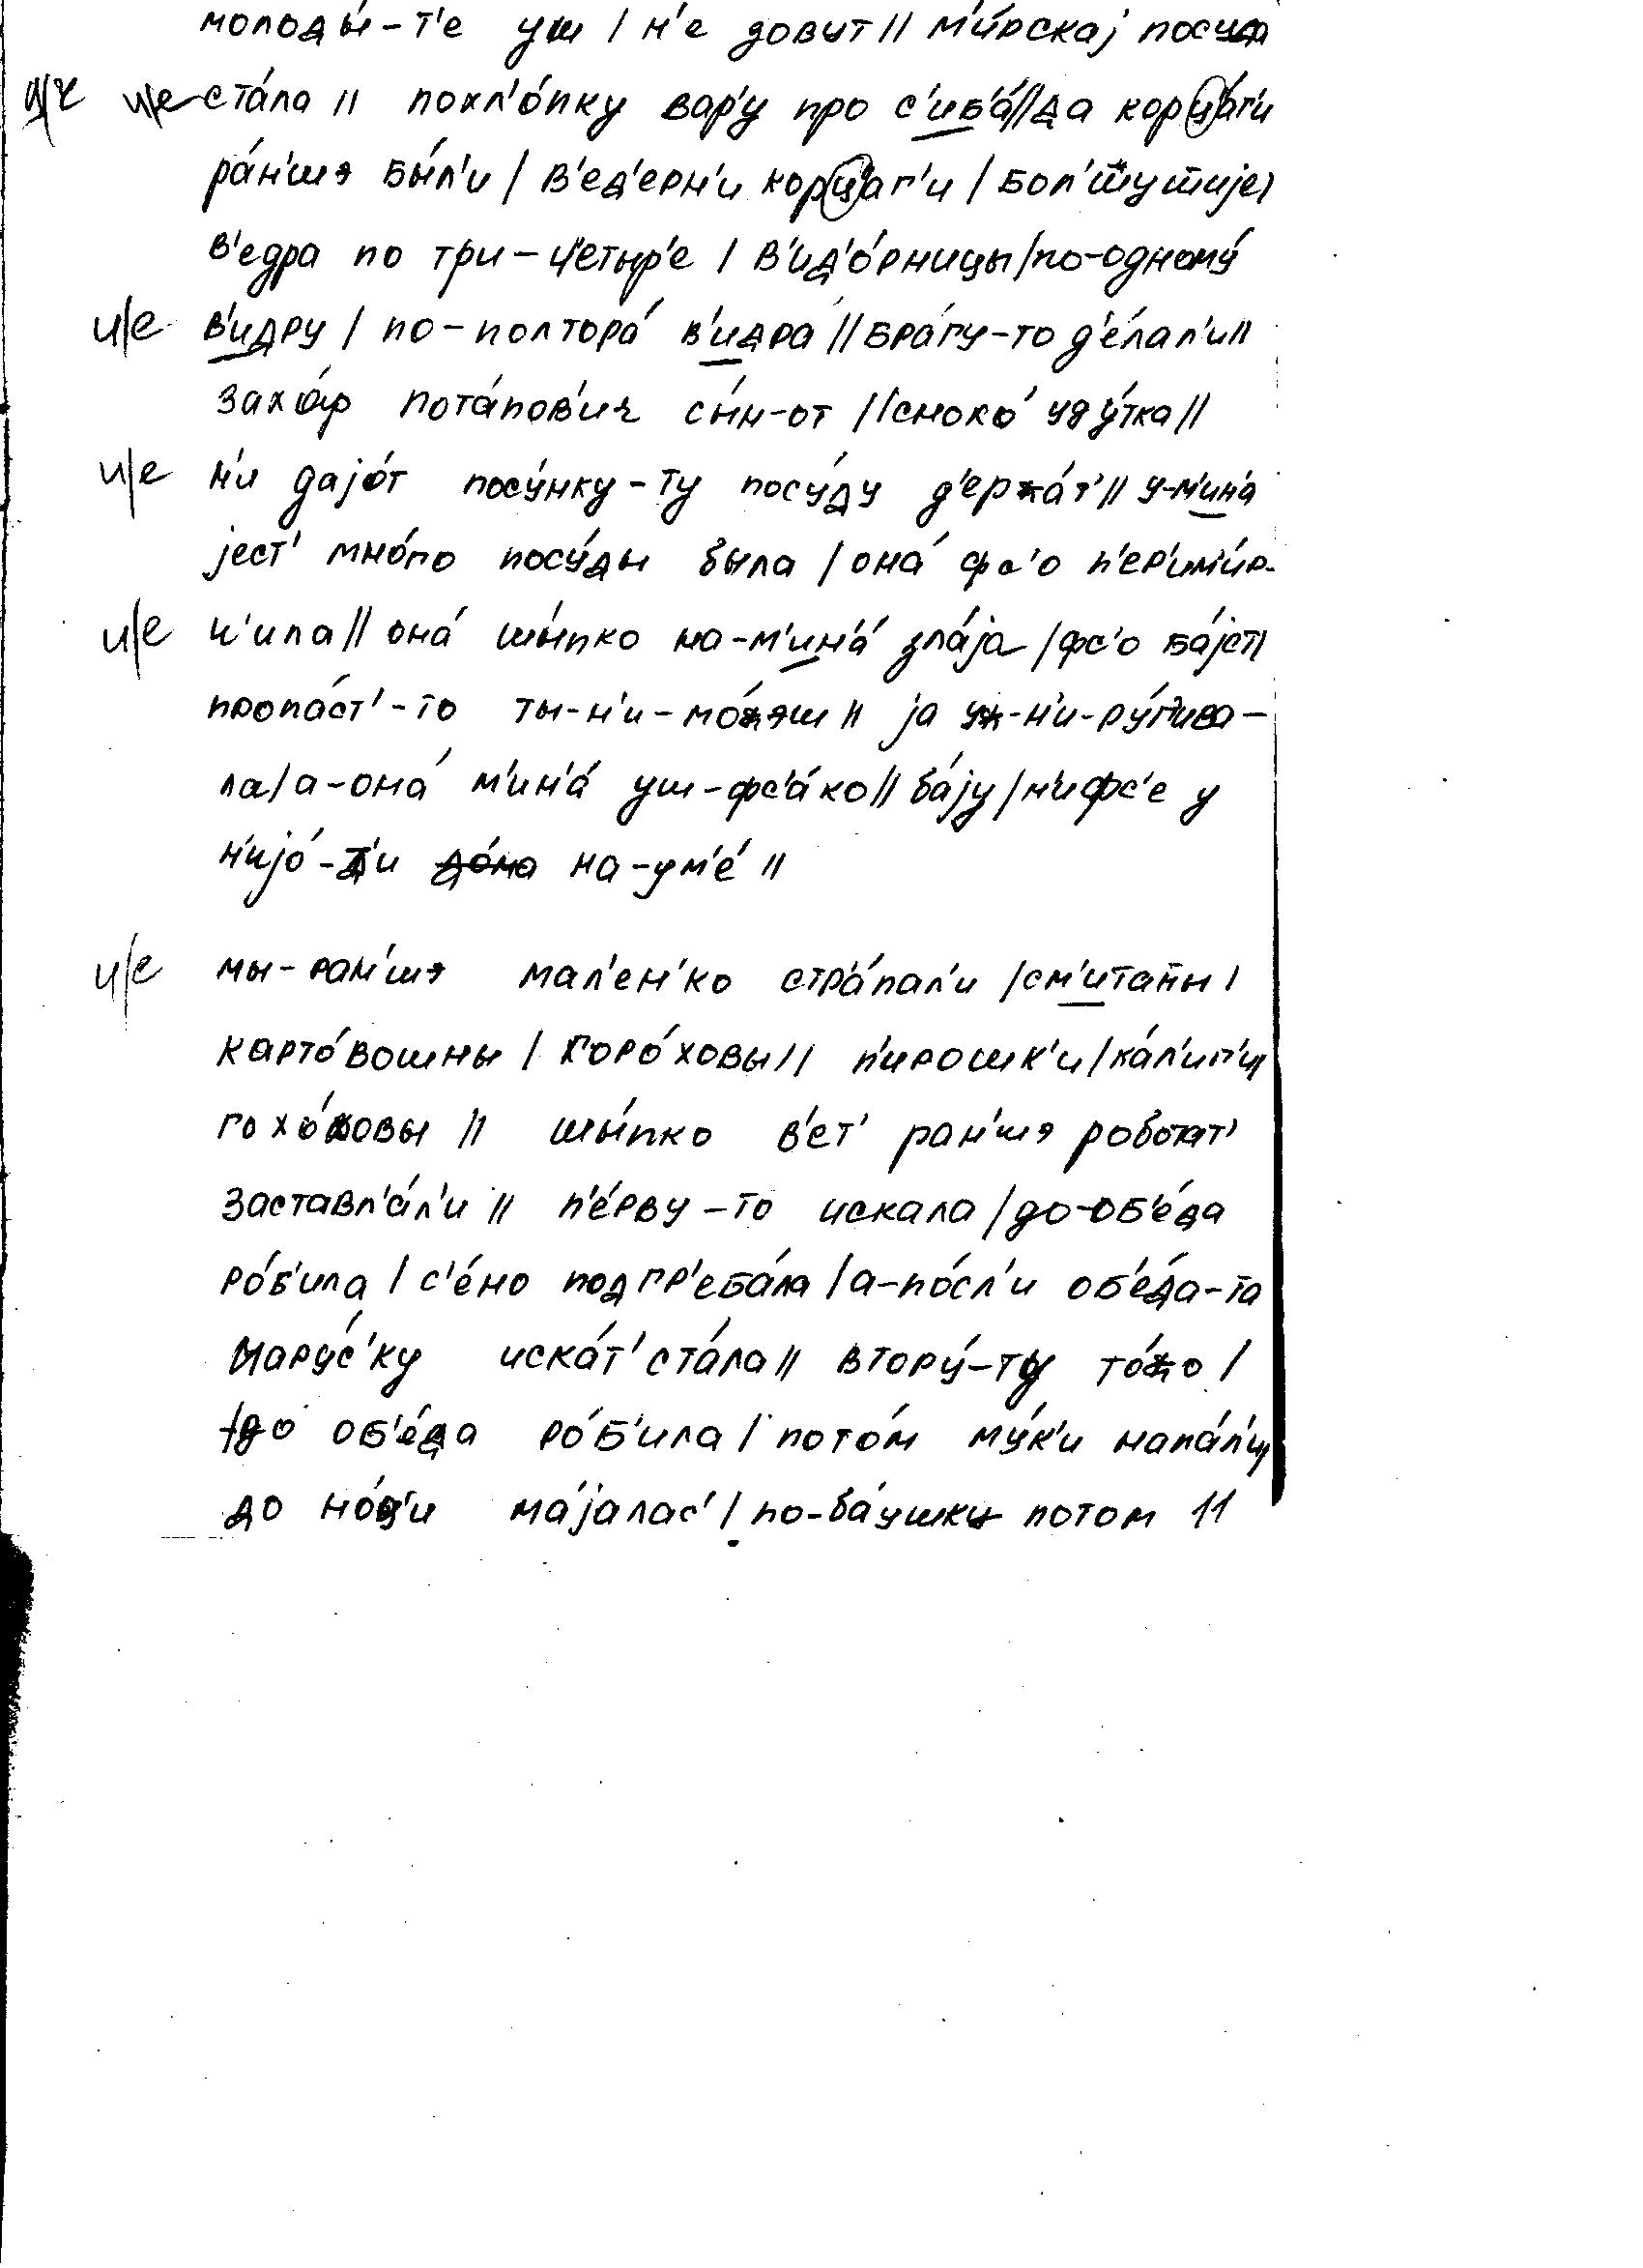 молоды́-т'е уш / н'е довит // м'и́рскај посуда
ц/ч и/е ста́ла // похл'о́пку вар'у про с'иб'а́ // да корца́г'и
ра́н'шэ бы́л'и / в'ед'ерн'и корцаг'и / бол'шушшије /
в'едра по три – четыр'е / в'ид'о́рницы / по-одному́
и/е в'идру / по-полтора́ в'идра́ // бра́гу-то д'е́лал'и //
заха́р пота́пов'ич сы́н-от // сноха́ уду́тка //
и/е н'и дајо́т посу́нку-ту посу́ду д'ержа́т' // у-м'ин'а
јест' мно́го посу́ды была / она́ фс'о п'ер'им'и́р-
и/е ч'ила // она́ шы́пко на-м'ин'а́ зла́ја / фс'о ба́јет /
пропа́ст'-то ты-н'и-мо́жэш // ја уж-н'и-ру́г'ива-
ла / а-она́ м'ин'а́ уш-фс'а́ко // ба́ју / н'ифс'е у
н'ијо́-д'и на-ум'е́ //
и/е мы-ран'шэ мал'ен'ко стр'а́пал'и / см'итаны /
карто́вошны / горо́ховы // п'ирошк'и / ка́л'иг'и /
гохо́ховы // шы́пко в'ет' ран'шэ робота́т'
заставл'а́л'и // п'е́рву-то искала / до-об'е́да
ро́б'ила / с'е́но подгр'еба́ла / а-по́сл'и об'е́да-та
Мару́с'ку иска́т' ста́ла // втору́-ту то́жо /
до об'е́да ро́б'ила / пото́м му́к'и напа́л'и /
до но́ц'и ма́јалас' / по-ба́ушку потом //